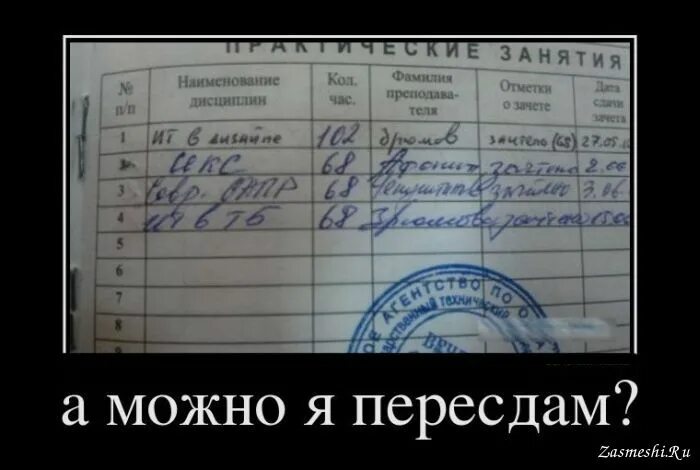 ПРАКТИЧЕСКИЕ ЗАНЯТИЯ
№ п/п Наименование дисциплин Кол. час. Фамилия преподава-теля Отметки о зачете Дата сдачи зачета
1 ИТ в дизайне 102 зачтено (68) 27.05
2 ИКС 68 зачтено
3 68 зачтено 3.06
4 ИТ в ТБ 68 зачтено
5
6
7
8
9
АГЕНТСТВО ПО
ТЕХНИЧЕСКИЙ
а можно я пересдам?
Zasmeshi.Ru